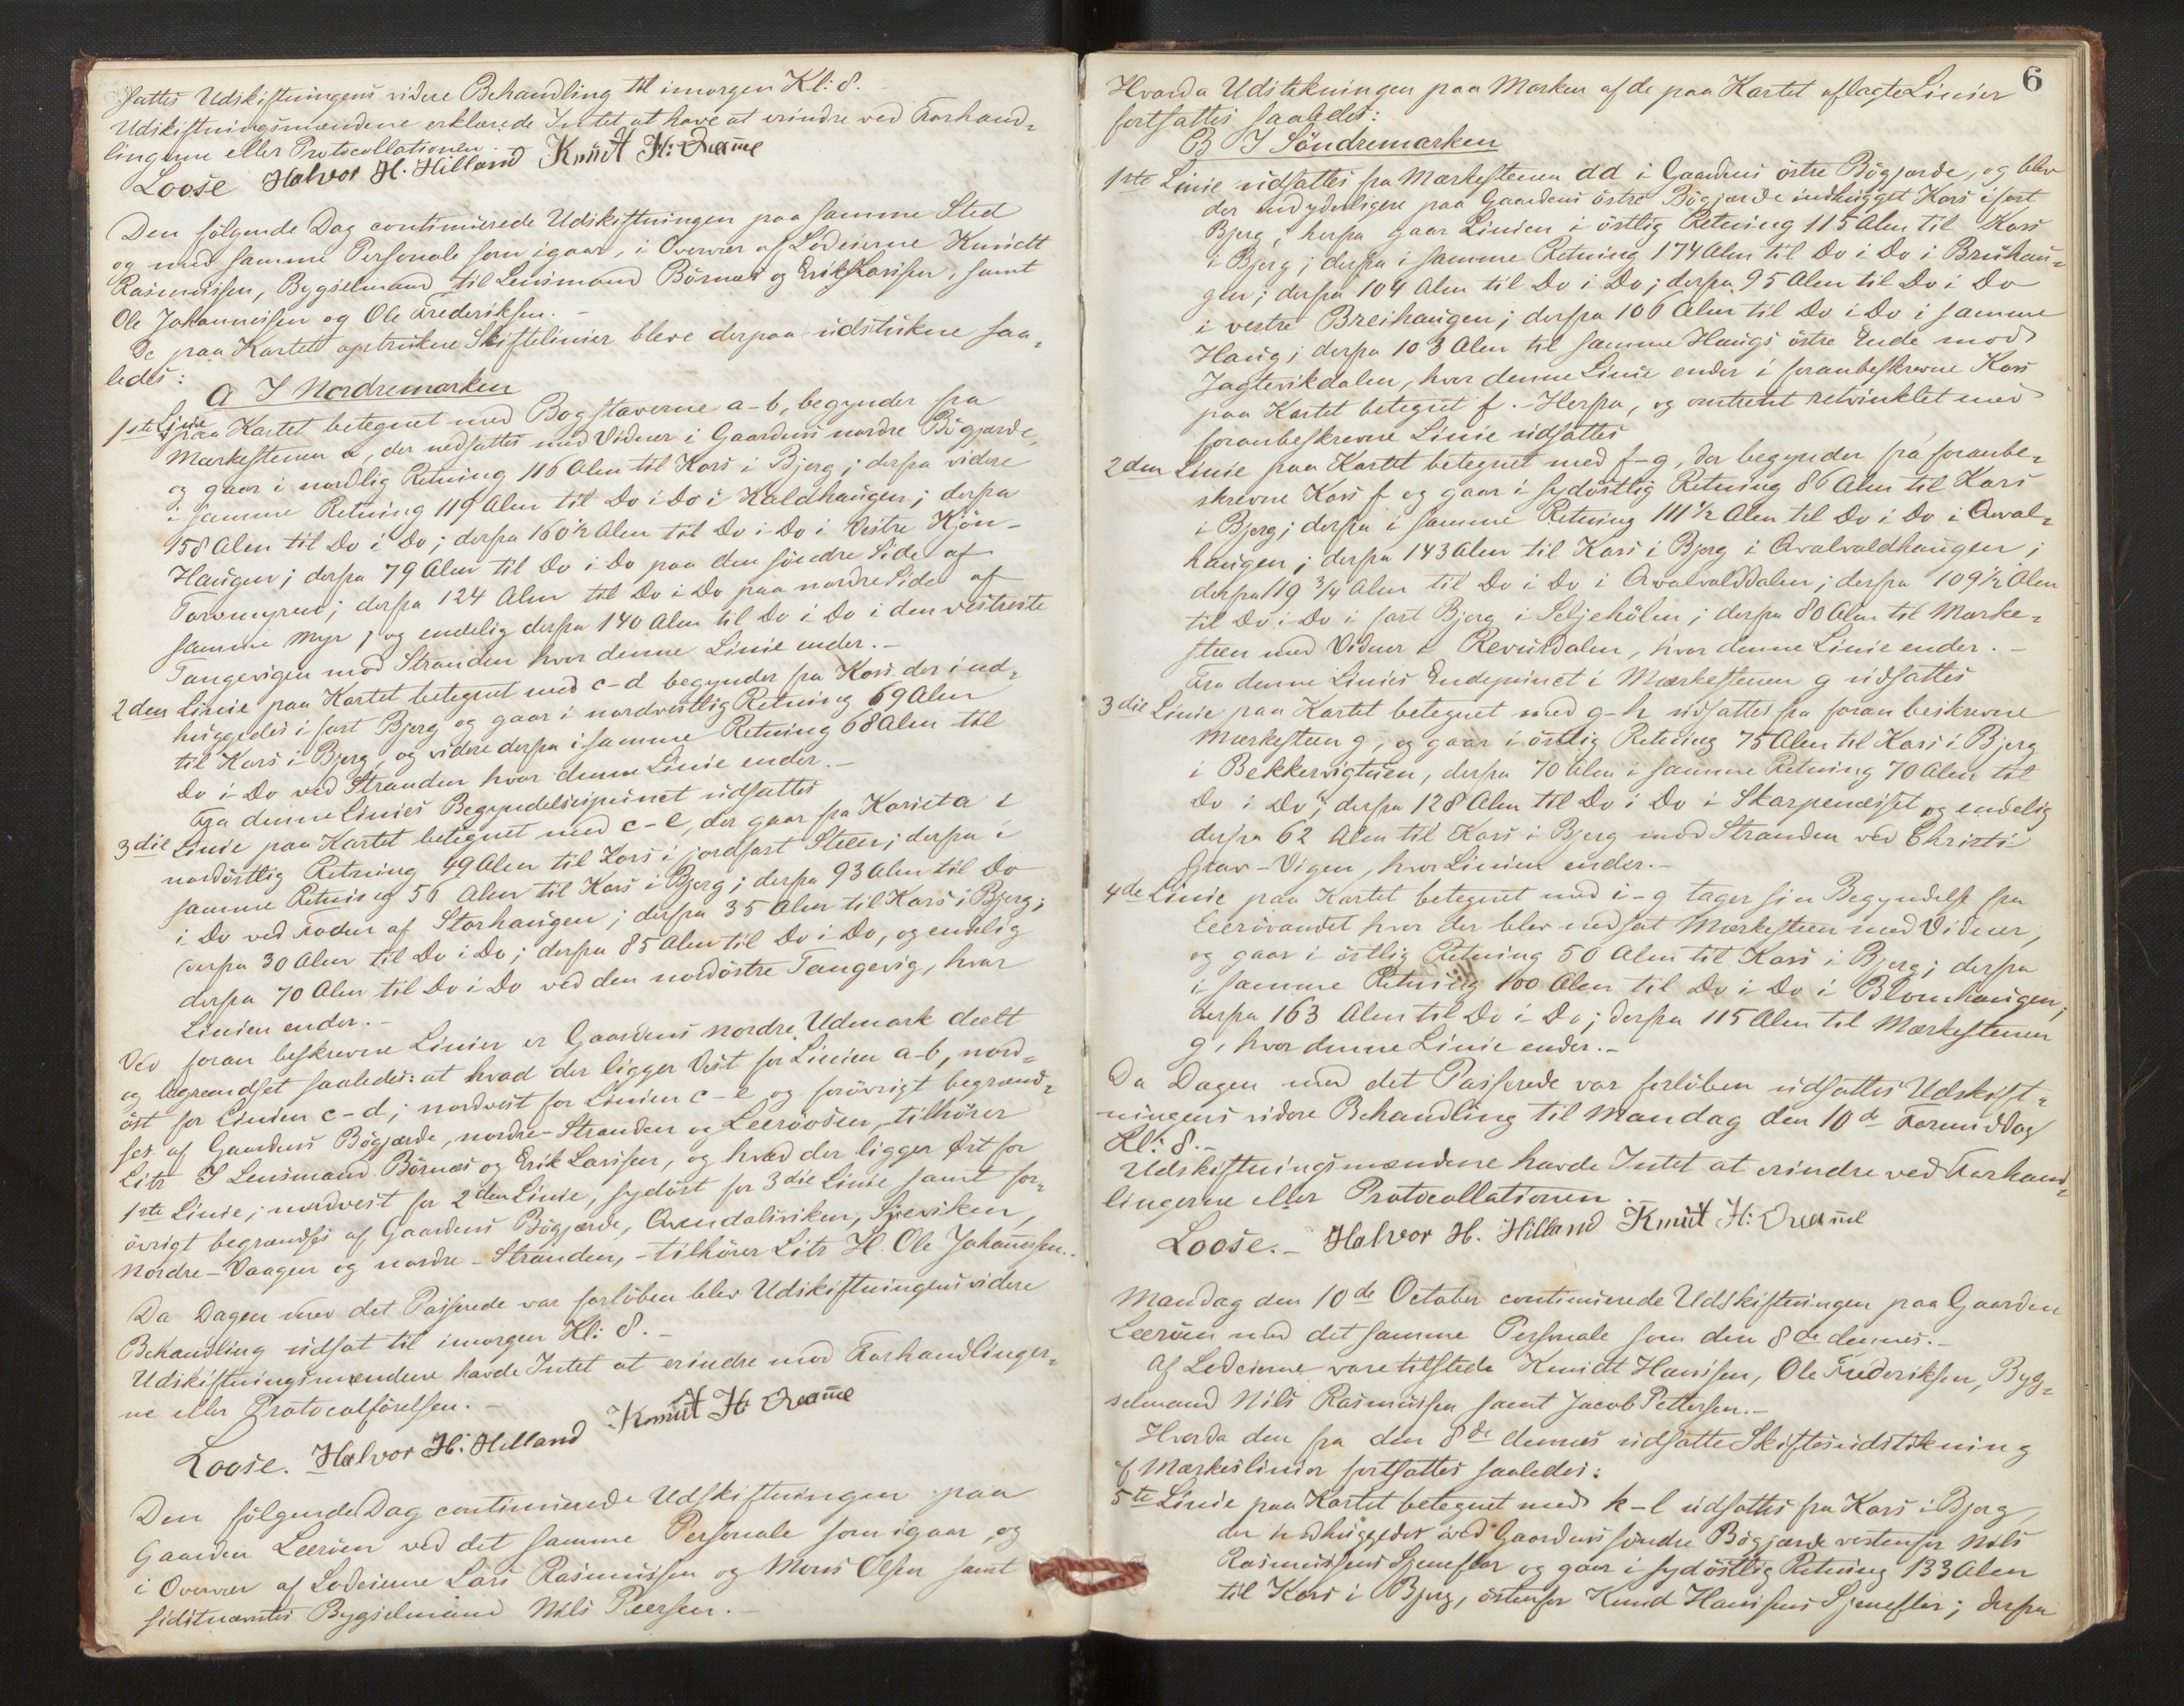 sattes Udskiftningens videre Behandling til imorgen Kl: 8.-
Udskiftningsmændene erklærede Intet at have at erindre ved Forhand-
lingerne eller Protocollationen.
Loose Halvor H. Hilland Knut H: Qvame
Den følgende Dag continuerede Udskiftningen paa samme Sted
og med samme Personale som igaar, i Overvær af Lodeierne Knudt
Rasmussen, Bygselmand til Lensmand Børnes og Erik Larssen, samt
Ole Johannessen og Ole Frederiksen.-
De paa Kartet optrukne Skiftelinier bleve derpaa udstukne saa-
ledes:
A I Nordremarken
1ste Linie paa Kartet betegnet med Bogstaverne a-b, begynder fra
Mærkestenen a, der nedsattes med Vidner i Gaardens nordre Bøgjærde,
og gaar i nordlig Retning 116 Alen til Kors i Bjerg; derfra videre
i samme Retning 119 Alen til Do i Do i Kaldhaugen; derfra
158 Alen til Do i Do; derfra 160½ Alen til Do i Do i Vestre Kjøn-
Haugen; derfra 79 Alen til Do i Do paa den søndre Side af
Torvmyren; derfra 124 Alen til Do i Do paa nordre Side af
samme Myr; og endelig derfra 140 Alen til Do i Do i den vestreste
Tangevigen mod Stranden hvor denne Linie ender.-
2den Linie paa Kartet betegnet med c-d begynder fra Kors der ind-
huggedes i fast Bjerg og gaar i nordvestlig Retning 69 Alen
til Kors i Bjerg, og videre derfra i samme Retning 68 Alen til
Do i Do ved Stranden hvor denne Linie ender.-
Fra denne Linies Begyndelsespunct udsattes
3die Linie paa Kartet betegnet med c-e, der gaar fra Korset a i
nordøstlig Retning 49 Alen til Kors i jordfast Steen; derfra i
samme Retning 56 Alen til Kors i Bjerg; derfra 93 Alen til Do
i Do ved Foden af Storhaugen; derfra 35 Alen til Kors i Bjerg;
derfra 30 Alen til Do i Do; derfra 85 Alen til Do i Do, og endelig
derfra 70 Alen til Do i Do ved den nordøstre Tangevig, hvor
Linien ender.-
Ved foran beskrevne Linier er Gaardens nordre Udmark deelt
og begrændset saaledes: at hvad der ligger Vest for Linien a-b, nord-
øst for Linien c-d; nordvest for Linien c-e og forøvrigt begrænd-
ses af Gaardens Bøgjærde, nordre-Stranden og Leeroosen, tilhører
Litr I Lensmand Børnes og Erik Larssen, og hvad der ligger Øst for
1ste Linie; nordvest for 2den Linie, sydøst for 3die Linie samt for-
øvrigt begrændses af Gaardens Bøgjærde, Qvendalsviken, Sjøviken,
Nordre-Vaagen og nordre-Stranden,-tilhører Litr H. Ole Johannessen.-
Da Dagen med det Passerede var forløben blev Udskiftningens videre
Behandling udsat til imorgen Kl: 8.-
Udskiftningsmændene havde Intet at erindre mod Forhandlinger-
ne eller Protocolførelsen.-
Loose. Halvor H: Hilland Knut H: Qvame
Den følgende Dag continuerede Udskiftningen paa
Gaarden Leerøen ved det samme Personale som igaar, og
i Overvær af Lodeierne Lars Rasmussen og Mons Olsen samt
sidstnævntes Bygselmand Nils Peersen.-
6
Hvorda Udstikningen paa Marken af de paa Kartet aflagte Linier
fortsattes saaledes:
B I Søndremarken
1ste Linie udsattes fra Mærkestenen dd i Gaardens østre Bøgjærde, og blev
der endyderligere paa Gaardens østre Bøgjærde indhugget Kors i fast
Bjerg; herfra gaar Linien i østlig Retning 115 Alen til Kors
i Bjerg; derfra i samme Retning 174 Alen til Do i Do i Bruhau-
gen; derfra 104 Alen til Do i Do; derfra 95 Alen til Do i Do
i vestre Breihaugen; derfra 106 Alen til Do i Do i samme
Haug; derfra 103 Alen til samme Haugs østre Ende mod
Jagtevikdalen, hvor denne Linie ender i foranbeskrevne Kors
paa Kartet betegnet f.-Herfra, og omtrent retvinklet med
foranbeskrevne Linie udsattes
2den Linie paa Kartet betegnet med f-g, der begynder fra foranbe-
skrevne Kors f og gaar i sydøstlig Retning 86 Alen til Kors
i Bjerg; derfra i samme Retning 111½ Alen til Do i Do i Qval-
haugen; derfra 143 Alen til Kors i Bjerg i Qvalvaldhaugen;
derfra 119¾ Alen til Do i Do i Qvalvalddalen; derfra 109½ Alen
til Do i Do i fast Bjerg i Seljehølen; derfra 80 Alen til Mærke-
steen med Vidner i Revurdalen, hvor denne Linie ender.-
Fra denne Linies Endepunct i Mærkestenen g udsattes
3die Linie paa Kartet betegnet med g-h udsattes fra foran beskrevne
Mærkesteen g, og gaar i østlig Retning 75 Alen til Kors i Bjerg
i Bekkervigtuen, derfra 70 Alen i samme Retning 70 Alen til
Do i Do; derfra 128 Alen til Do i Do i Skarpenæsset og endelig
derfra 62 Alen til Kors i Bjerg mod Stranden ved Christi
Grav-Vigen, hvor Linien ender.-
4de Linie paa Kartet betegnet med i-g tager sin Begyndelse fra
Leerøvandet hvor der blev nedsat Mærkesteen med Vidner,
og gaar i østlig Retning 50 Alen til Kors i Bjerg; derfra
i samme Retning 100 Alen til Do i Do i Blomhaugen,
derfra 163 Alen til Do i Do; derfra 115 Alen til Mærkestenen
g, hvor denne Linie ender.-
Da Dagen med det Passerede var forløben udsattes Udskift-
ningens videre Behandling til Mandag den 10de Formiddag
Kl: 8.-
Udskiftningsmændene havde Intet at erindre ved Forhand-
lingerne eller Protocollationen.
Loose.- Halvor H. Hilland Knut H: Qvame
Mandag den 10de October continuerede Udskiftningen paa Gaarden
Leerøen med det samme Personale som den 8de dennes.-
Af Lodeierne vare tilstede Knudt Hanssen, Ole Frederiksen, Byg-
selmand Nils Rasmussen samt Jacob Pettersen.-
Hvorda den fra den 8de dennes udsatte Skiftesudstikning
af Mærkeslinier fortsattes saaledes:
5te Linie paa Kartet betegnet med k-l udsattes fra Kors i Bjerg,
der indhuggedes ved Gaardens søndre Bøgjærde vestenfor Nils
Rasmussens Sjeneflor og gaar i sydøstlig Retning 133 Alen
til Kors i Bjerg, østenfor Knud Hanssens Sjeneflor; derfra